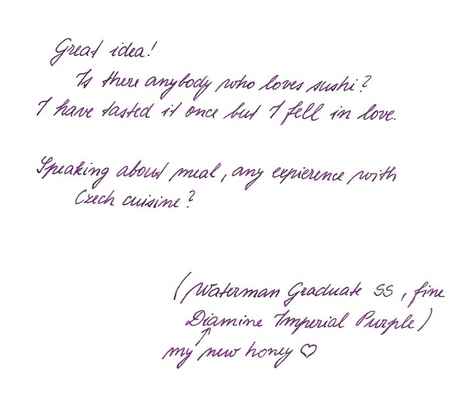 Great idea!
Is there anybody who loves sushi?
I have tasted it once but I fell in love.
Speaking about meal, any expierence with
Czech cuisine?
(Waterman Graduate SS, fine
Diamine Imperial Purple)
my new honey ♡